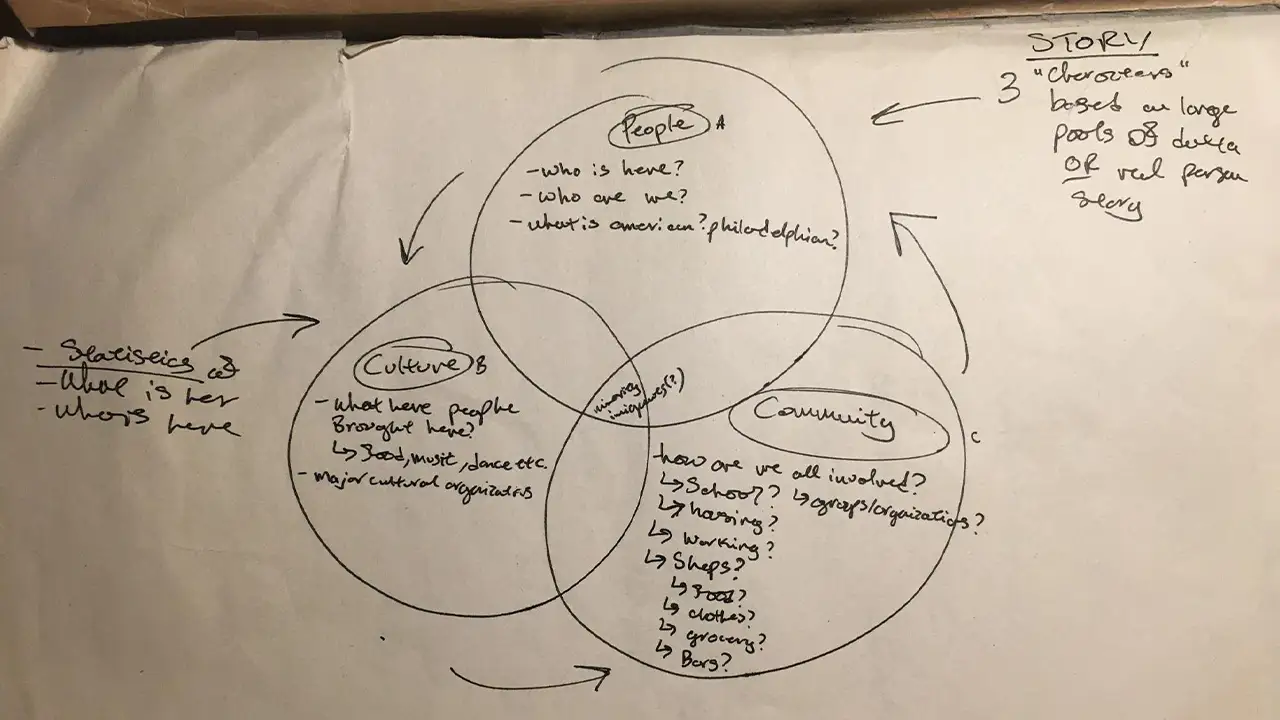 STORY
3 "Characters"
based on large
pools of data
OR real person
story
People A
- who is here?
- who are we?
- what is american? philadelphian?
- Statistics of
- What is her
- Who is here
Culture B
- what have people
Brought here?
↳ Food, music, dance etc.
- major cultural organizations
(?)
Community C
- how are we all involved?
↳ School? ↳ groups/organizations?
↳ housing?
↳ working?
↳ Shops?
↳ food?
↳ clothes?
↳ grocery?
↳ Bars?